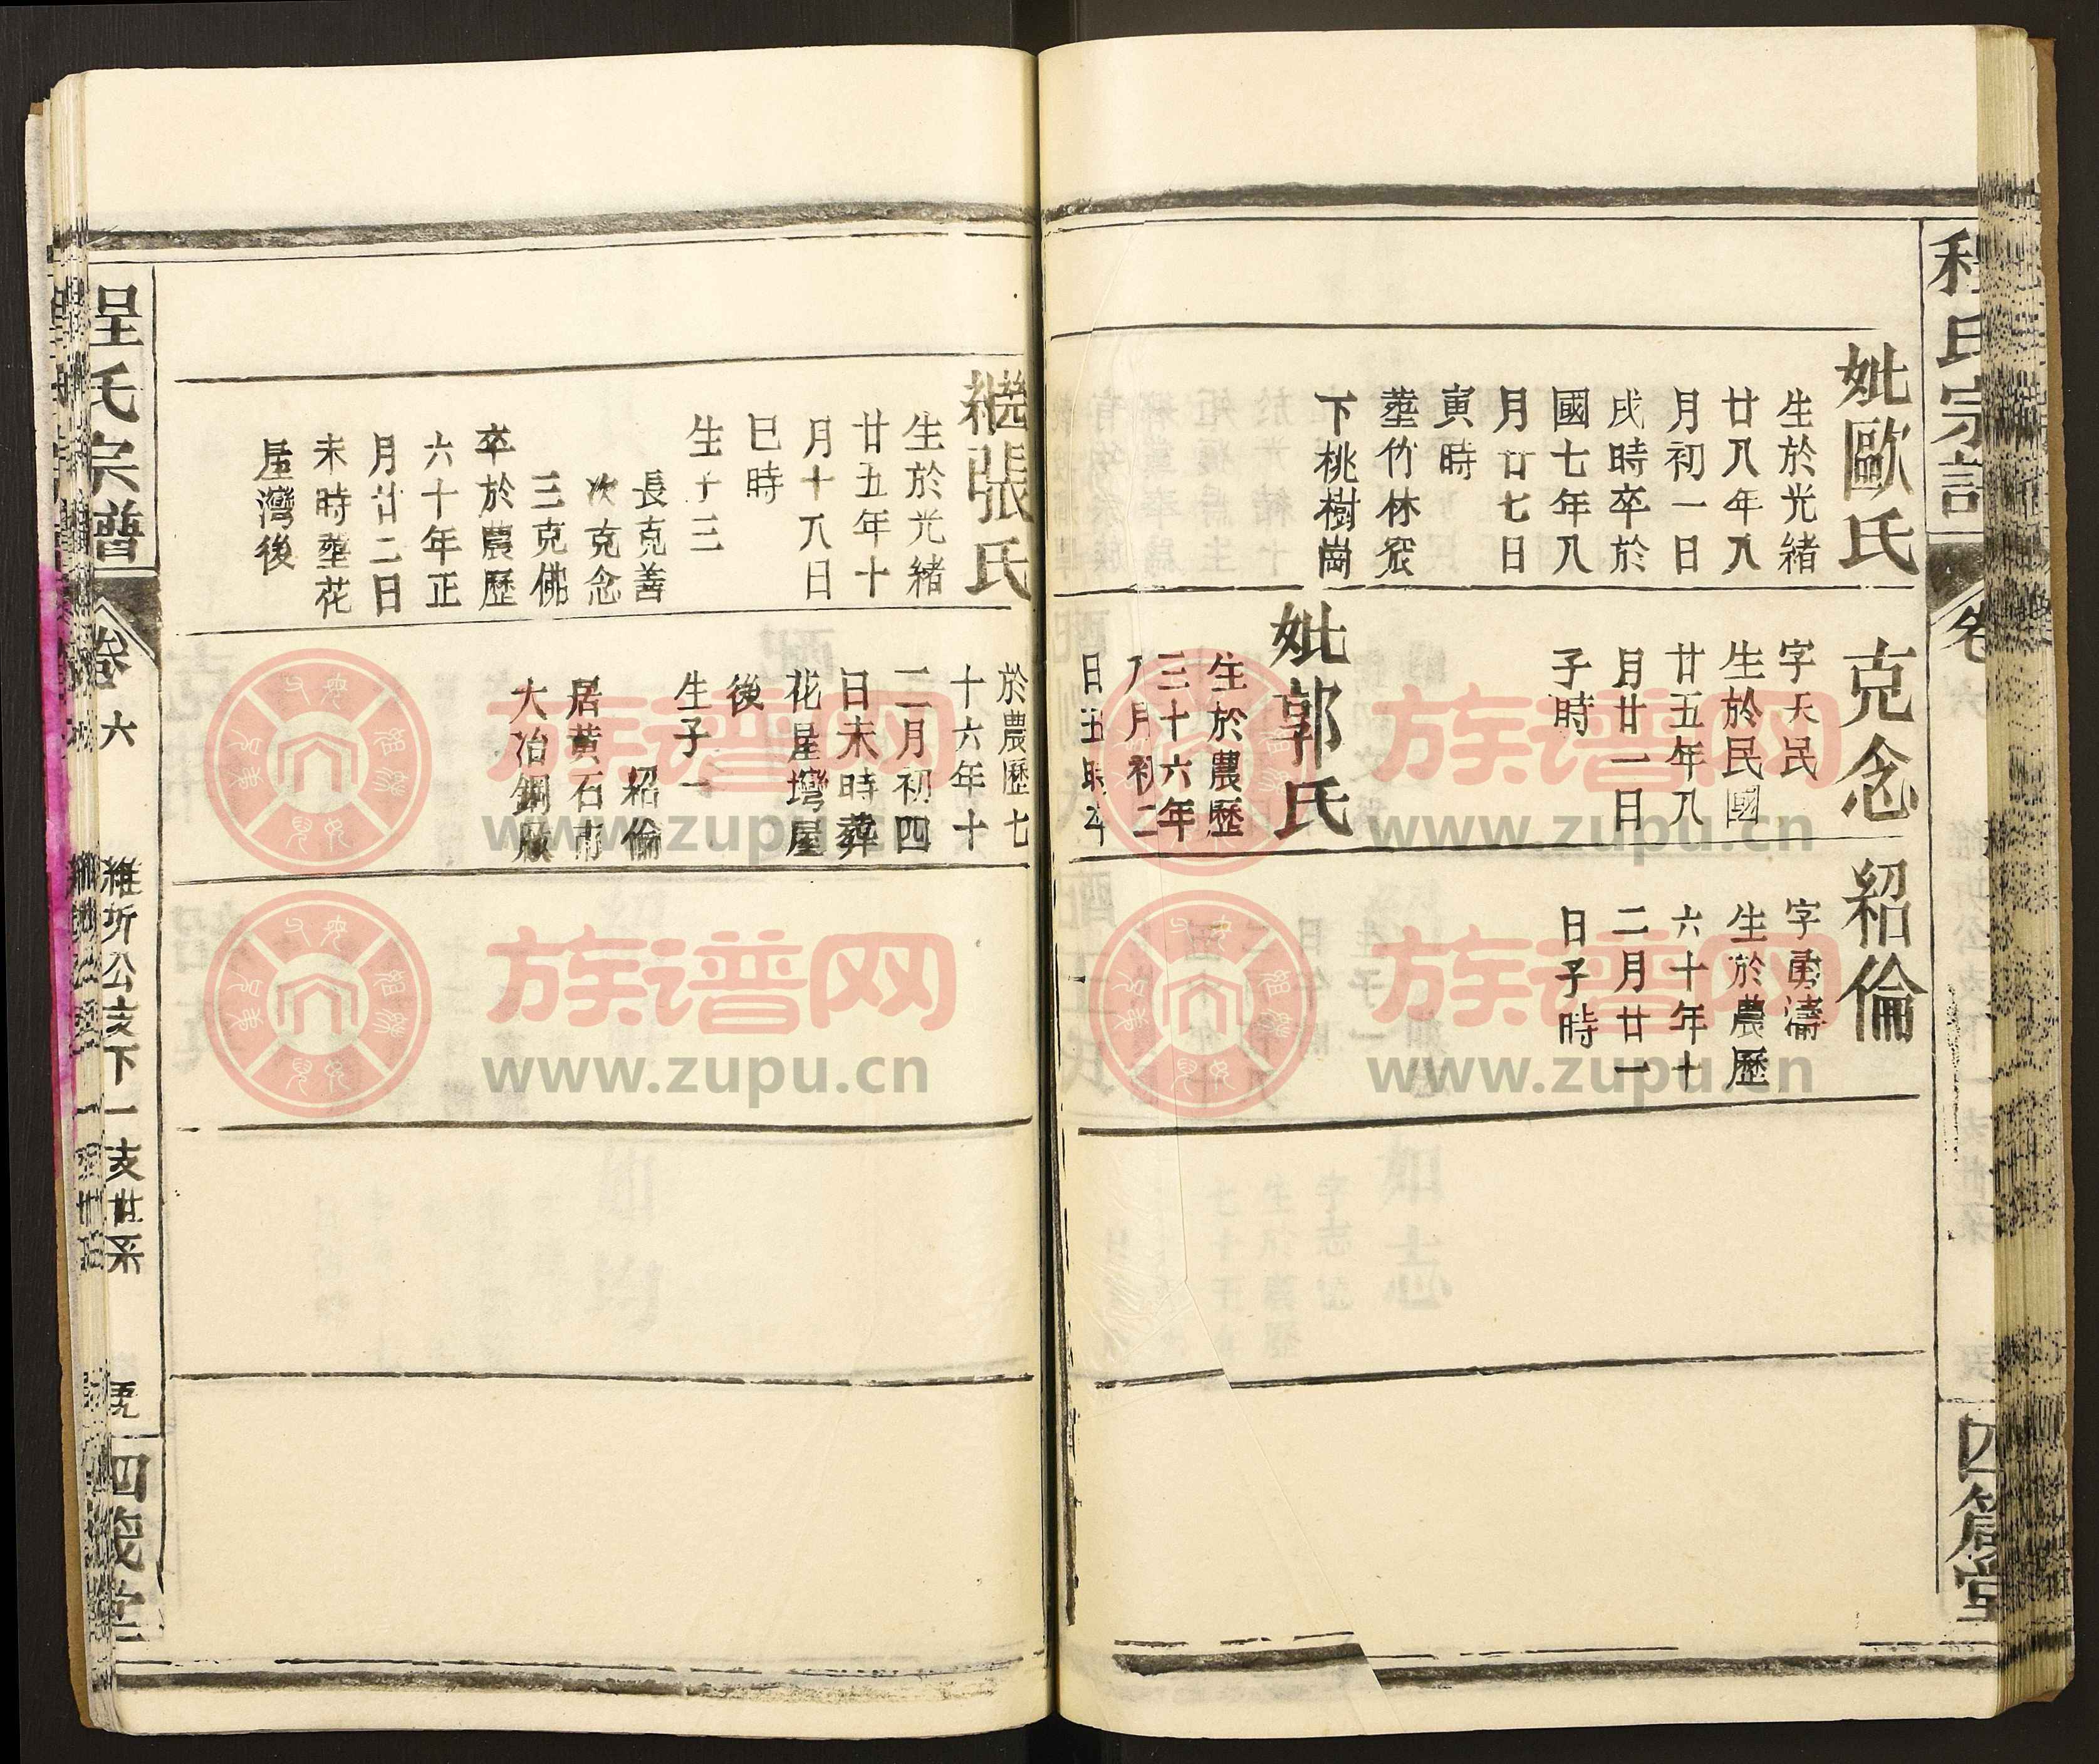 程氏宗譜
卷
四箴堂
妣歐氏
生於光緒
廿八年八
月初一日
戌時卒於
國七年八
月廿七日
寅時
塟竹林窊
下桃樹崗
克念
字天民
生於民國
廿五年八
月廿一日
子時
妣郭氏
生於農歷
三十六年
八月初二
日丑時卒
紹倫
字勇濤
生於農歷
六十年十
二月廿一
日子時
継張氏
生於光緒
廿五年十
月十八日
巳時
生子三
長克善
次克念
三克佛
卒於農歷
六十年正
月廿二日
未時塟花
屋灣後
於農歷七
十六年十
二月初四
日未時葬
花屋塆屋
後
生子一
紹倫
居黃石市
大冶鋼廠
程氏宗譜
卷六
維圻公支下一支世系
四箴堂
族谱网
www.zupu.cn
族谱网
www.zupu.cn
族谱网
www.zupu.cn
族谱网
www.zupu.cn